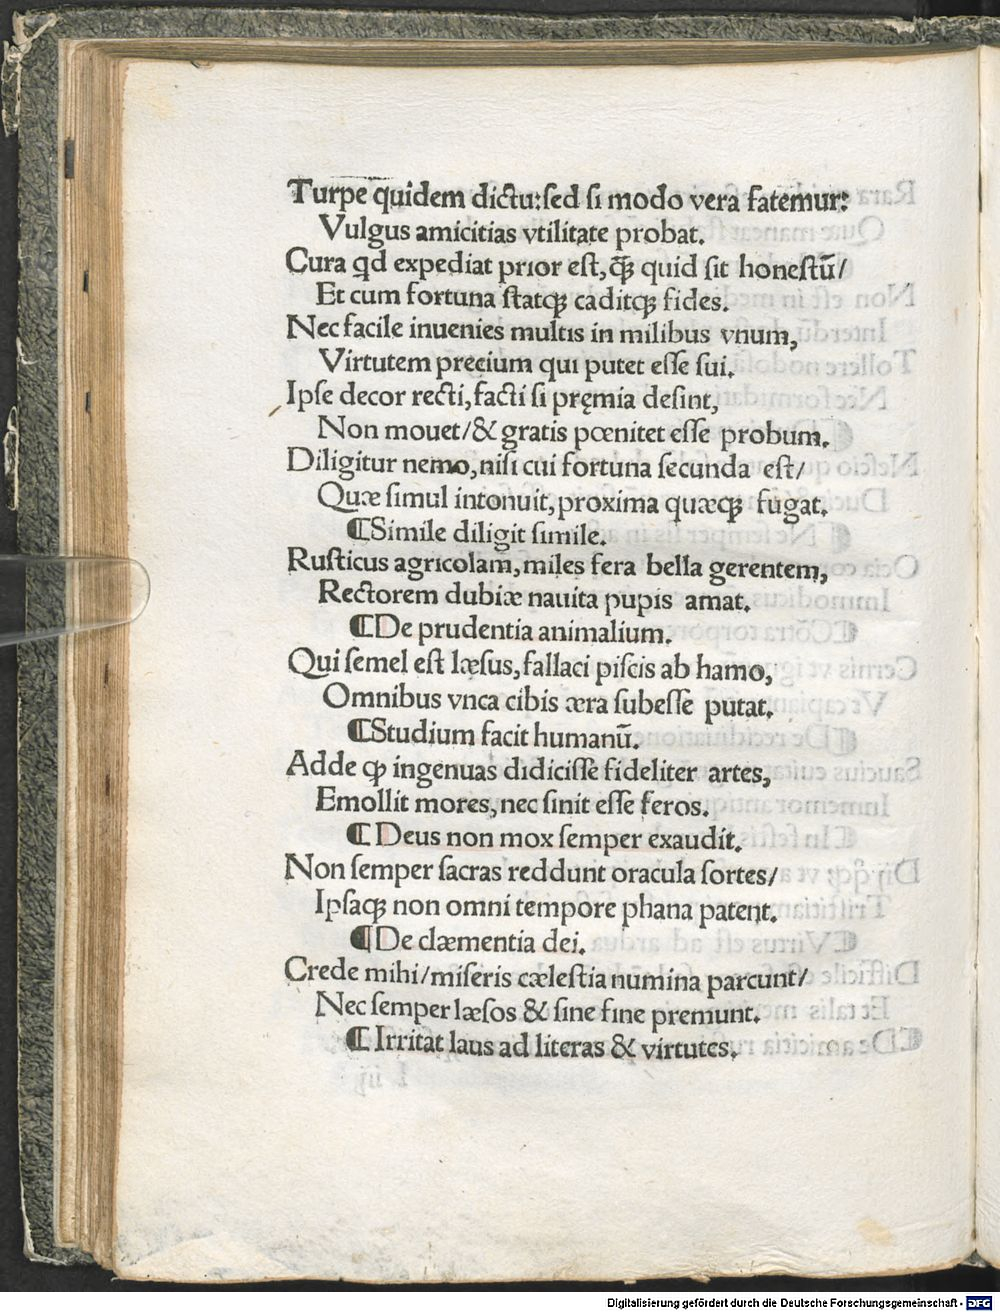 Turpe quidem dictu: sed si modo vera fatemur:
Vulgus amicitias vtilitate probat.
Cura qd expediat prior est, q̃ꝫ quid sit honestū/
Et cum fortuna statqꝫ caditqꝫ fides.
Nec facile inuenies multis in milibus vnum,
Virtutem precium qui putet esse sui.
Ipse decor recti, facti si pręmia desint,
Non mouet/& gratis pœnitet esse probum.
Diligitur nemo, nisi cui fortuna secunda est/
Quæ simul intonuit, proxima quæqꝫ fugat.
¶Simile diligit simile.
Rusticus agricolam, miles fera bella gerentem,
Rectorem dubiæ nauita pupis amat.
¶De prudentia animalium.
Qui semel est læsus, fallaci piscis ab hamo,
Omnibus vnca cibis æra subesse putat.
¶Studium facit humanū.
Adde qꝫ ingenuas didicisse fideliter artes,
Emollit mores, nec sinit esse feros.
¶Deus non mox semper exaudit.
Non semper sacras reddunt oracula sortes/
Ipsaqꝫ non omni tempore phana patent.
¶De clæmentia dei.
Crede mihi/miseris cælestia numina parcunt/
Nec semper læsos & sine fine premunt.
¶Irritat laus ad literas & virtutes.
Digitalisierung gefördert durch die Deutsche Forschungsgemeinschaft - DFG